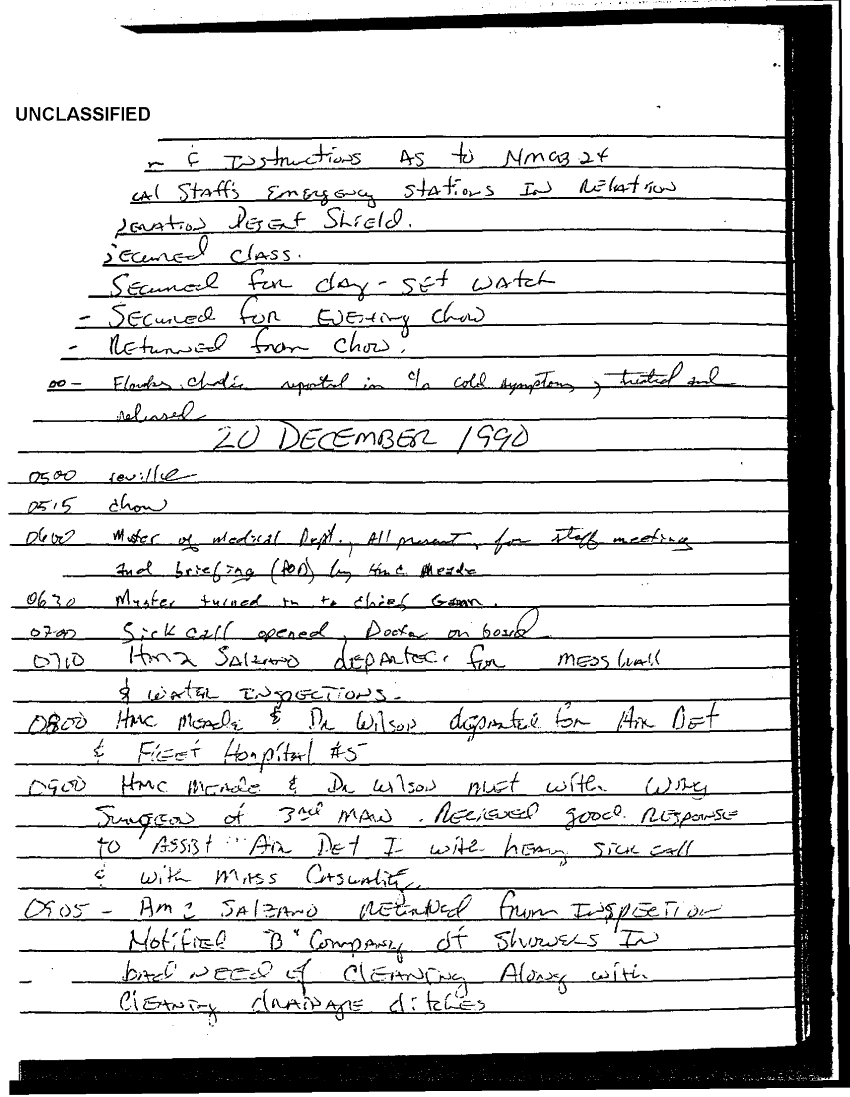 UNCLASSIFIED
Instructions As to NMCB 24
cal Staffs Emergency Stations In Relation
peration Desert Shield.
Secured class.
Secured for day - set watch
- Secured for Evening Chow
- Returned from Chow.
00 - reported in c/o cold symptoms, treated and
released
20 DECEMBER 1990
0500 reville
0515 chow
0600 Muster of medical Dept., All present, for staff meeting
and briefing (POD) by HMC Meade
0630 Muster turned in to chief
0700 Sick call opened, Doctor on board
0710 HM2 Salzano departed for messhall
& water Inspections.
0800 HMC Meade & Dr Wilson departed for Air Det
& Fleet Hospital #5
0900 HMC Meade & Dr Wilson met with Wing
Surgeon of 3rd MAW. Recieved good Response
to Assist Air Det I with heavy sick call
& with Mass Casuality.
0905 - HM2 Salzano Returned from Inspection
Notified "B" Company of Showers In
- bad Need of Cleaning Along with
Cleaning drainage ditches